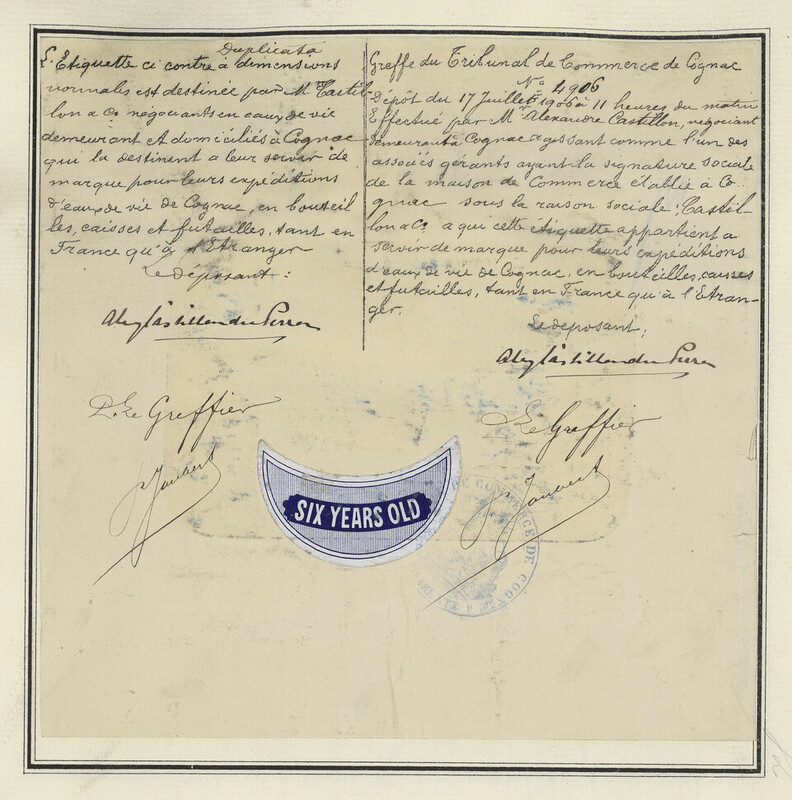 Duplicata
L'Etiquette ci contre à dimensions
normales est destinée par M Castil-
lon & Co négociants en eaux de vie
demeurant et domiciliés à Cognac
qui la destinent a leur servir de
marque pour leurs expéditions
d'eaux de vie de Cognac, en bouteil
les, caisses et futailles, tant en
France qu'à l'Etranger
Le déposant :
D. Le Greffier
Greffe du Tribunal de Commerce de Cognac
No 4906
Dépôt du 17 Juillet 1906 à 11 heures du matin
Effectué par Mr Alexandre Castillon, négociant
demeurant à Cognac agissant comme l'un des
associés gérants ayant la signature sociale
de la maison de Commerce établie à Co
gnac sous la raison sociale : Castil-
lon & Co a qui cette étiquette appartient a
servir de marque pour leurs expéditions
d'eaux de vie de Cognac, en bouteilles, caisses
et futailles, tant en France qu'à l'Etran-
ger.
Le déposant,
Le Greffier
SIX YEARS OLD
DE COMMERCE DE COGNAC